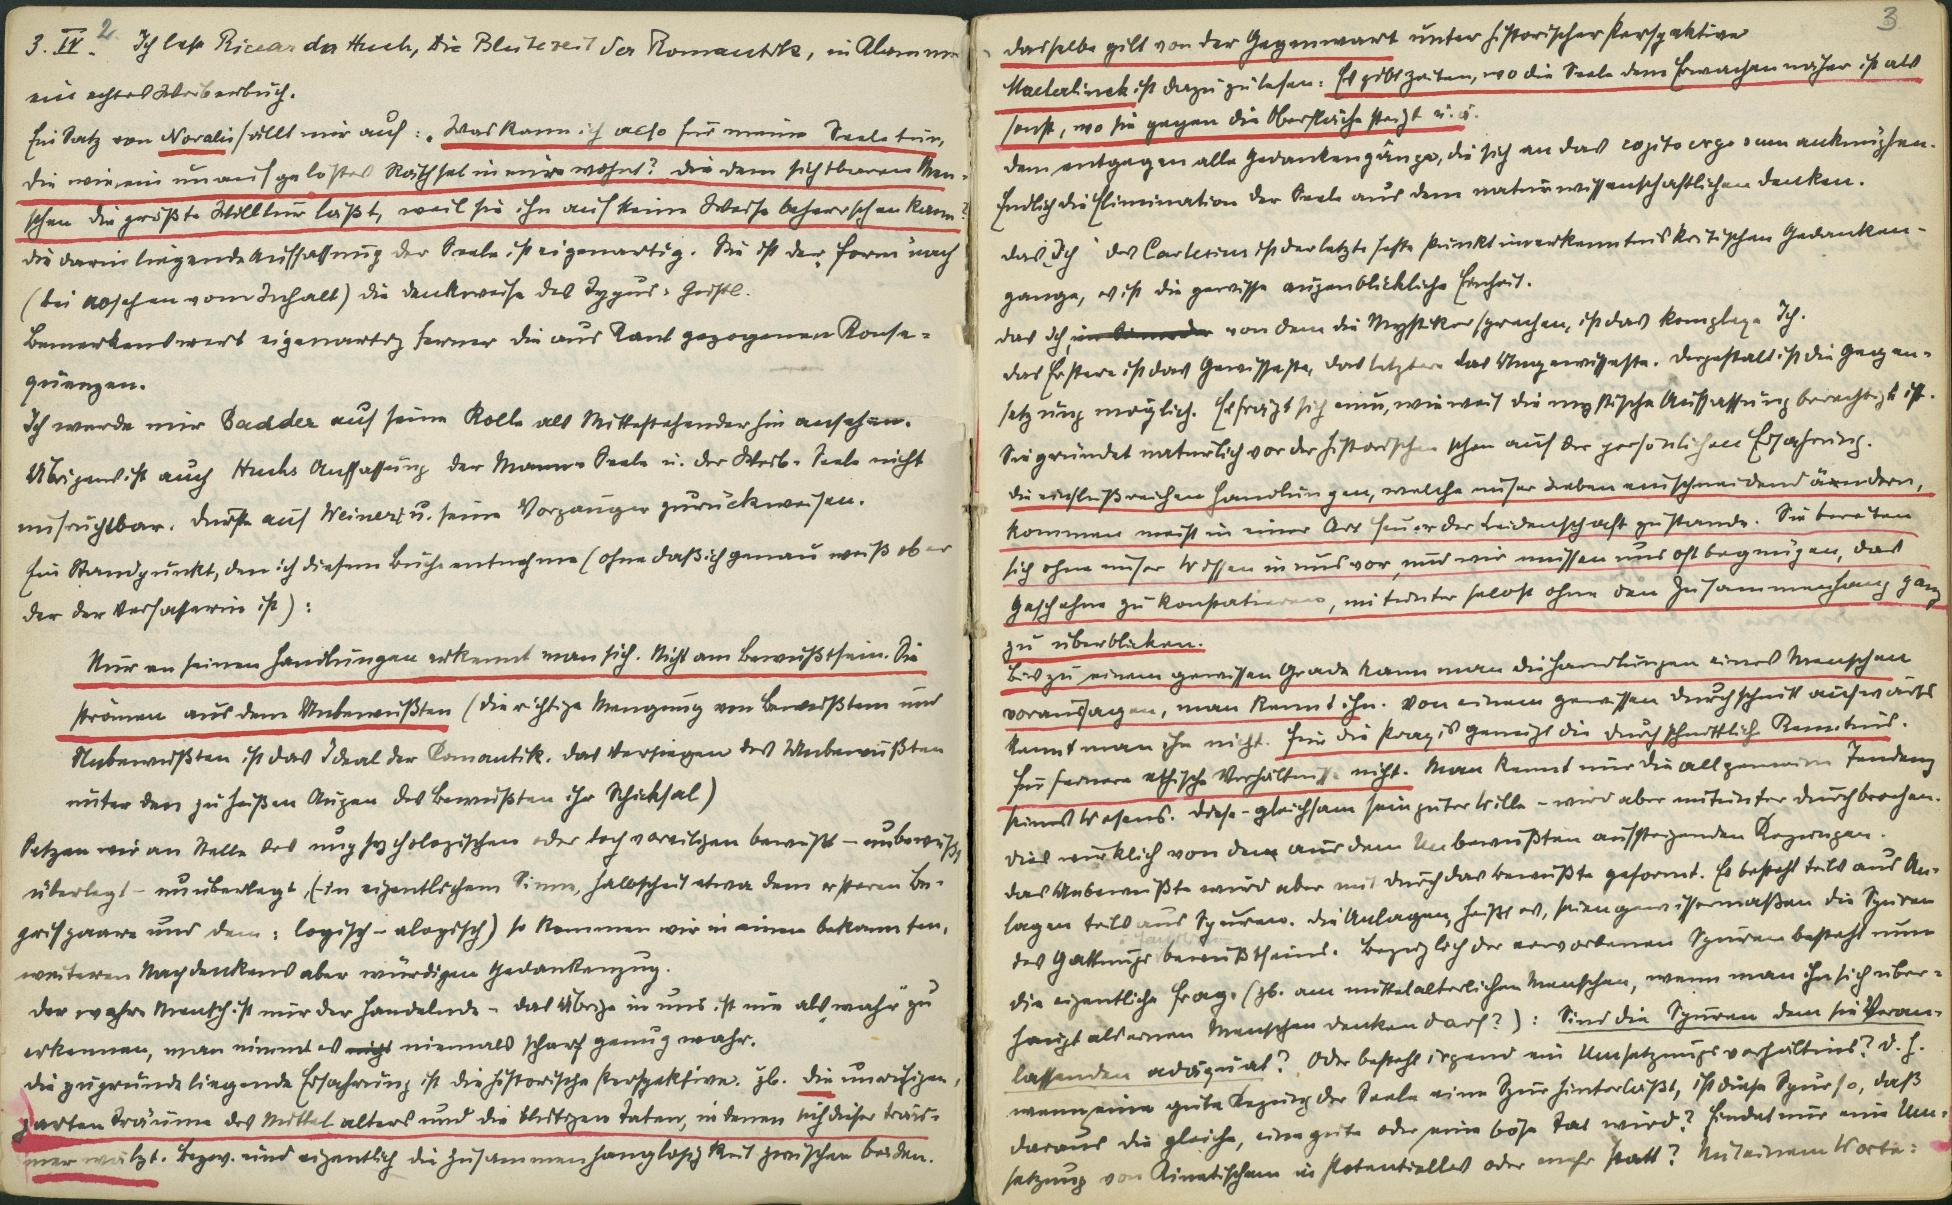 2
3. IV. Ich lese Ricarda Huch, Die Blütezeit der Romantik, in Allem
ein echtes Weiberbuch.
Ein Satz von Novalis fällt mir auf: „Was kann ich also für meine Seele tun,
die wie ein unaufgelöstes Räthsel in mir wohnt? Die dem sichtbaren Men-
schen die größte Willkür läßt, weil sie ihn auf keine Weise beherrschen kann?
Die darin liegende Auffassung der Seele ist eigenartig. Sie ist der „Form" nach
(bei absehen vom Inhalt) die Denkweise des Typus:
Bemerkenswert eigenartig ferner die aus Kant gezogenen Konse-
quenzen.
Ich werde mir Baader auf seine Rolle als Mittestehender hin ansehen.
Übrigens ist auch Huchs Auffassung der Mann-Seele u. der Weib-Seele nicht
unfruchtbar. Dürfte auf Weininger u. seine Vorgänger zurückweisen.
Ein Standpunkt, den ich diesem Buche entnehme (ohne daß ich genau weiß ob er
der der Verfasserin ist):
Nur an seinen Handlungen erkennt man sich. Nicht am Bewußtsein. Sie
strömen aus dem Unbewußten (die richtige Mengung von Bewußtem und
Unbewußten ist das Ideal der Romantik. Das Versiegen des Unbewußten
unter den zu heißen Augen des Bewußten ihr Schicksal)
Setzen wir an Stelle des unpsychologischen oder doch voreiligen bewußt – unbewußt,
überlegt – unüberlegt, (in eigentlichem Sinn, halbscheit etwa dem ersteren Be-
griffspaare und dem: logisch – alogisch) so kommen wir in einen bekannten,
weiteren Nachdenkens aber würdigen Gedankenzug.
Der wahre Mensch ist nur der Handelnde – das Übrige in uns ist nie als „wahr" zu
erkennen, man nimmt es nicht niemals scharf genug wahr.
Die zugrunde liegende Erfahrung ist die historische Perspektive. zb. Die unruhigen,
zarten Träume des Mittelalters und die blutigen Taten, in denen sich dieser Träu-
mer wälzt. Bezw. und eigentlich die Zusammenhanglosigkeit zwischen beiden.
3
Dasselbe gilt von der Gegenwart unter historischer Perspektive
Maeterlinck ist dazu zu lesen: Es gibt Zeiten, wo die Seele dem Erwachen näher ist als
sonst, wo sie gegen die Oberfläche steigt u. ä.
Dem entgegen alle Gedankengänge, die sich an das cogito ergo sum anknüpfen.
Endlich die Elimination der Seele aus dem naturwissenschaftlichen Denken.
Das „Ich" des Cartesius ist der letzte feste Punkt im erkenntniskritischen Gedanken-
gange, es ist die gewisse augenblickliche Einheit.
Das Ich, von dem die Mystiker sprachen, ist das komplexe Ich.
Das Erstere ist das Gewisseste, das letztere das Ungewisseste. Dergestalt ist die Gegen-
setzung möglich. Es frägt sich nun, wie weit die mystische Auffassung berechtigt ist.
Sie gründet natürlich vor der historischen schon auf der persönlichen Erfahrung.
Die einflußreichen Handlungen, welche unser Leben einschneidend ändern,
kommen meist in einer Art Feuer der Leidenschaft zustande. Sie bereiten
sich ohne unser Wissen in uns vor, und wir müssen uns oft begnügen, das
Geschehene zu konstatieren, mitunter selbst ohne den Zusammenhang ganz
zu überblicken.
Bis zu einem gewissen Grade kann man die Handlungen eines Menschen
voraussagen, man kennt ihn. Von einem gewissen Durchschnitt aufwärts
kennt man ihn nicht. Für die Praxis genügt die durchschnittliche Kenntnis.
Für fernere ethische Verhältnisse nicht. Man kennt nur die allgemeine Tendenz
seines Wesens. Diese – gleichsam sein guter Wille – wird aber mitunter durchbrochen.
Dies wirklich von den aus dem Unbewußten aufsteigenden Regungen.
Das Unbewußte wird aber mit durch das Bewußte geformt. Es besteht teils aus An-
lagen teils aus Spuren. Die Anlagen, heißt es, seien gewissermaßen die Spuren
des Gattungsbewußtseins. Bezüglich der erworbenen Spuren besteht nun
die eigentliche Frage (zb. am mittelalterlichen Menschen, wenn man ihn sich über-
haupt als einen Menschen denken darf?): Sind die Spuren dem sie Veran-
lassenden adäquat? Oder besteht irgend ein Umsetzungsverhältnis? D. h.
wenn eine gute Regung der Seele eine Spur hinterläßt, ist diese Spur so, daß
daraus die gleiche, eine gute oder eine böse Tat wird? Findet nur eine Um-
setzung von Kinetischem in Potentielles oder mehr statt? Mit einem Worte: